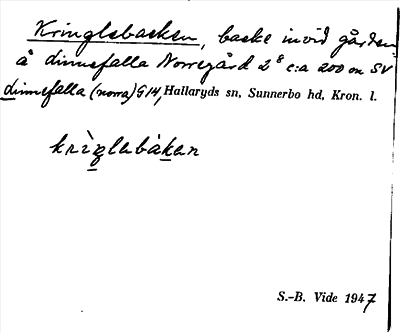 Kringlebacken, backe invid gården
å dinnefalla Norregård 2⁸ c:a 200 m SV
dinnefalla (norra) G14, Hallaryds sn, Sunnerbo hd, Kron. l.
krìŋlebàkan
S.-B. Vide 1947